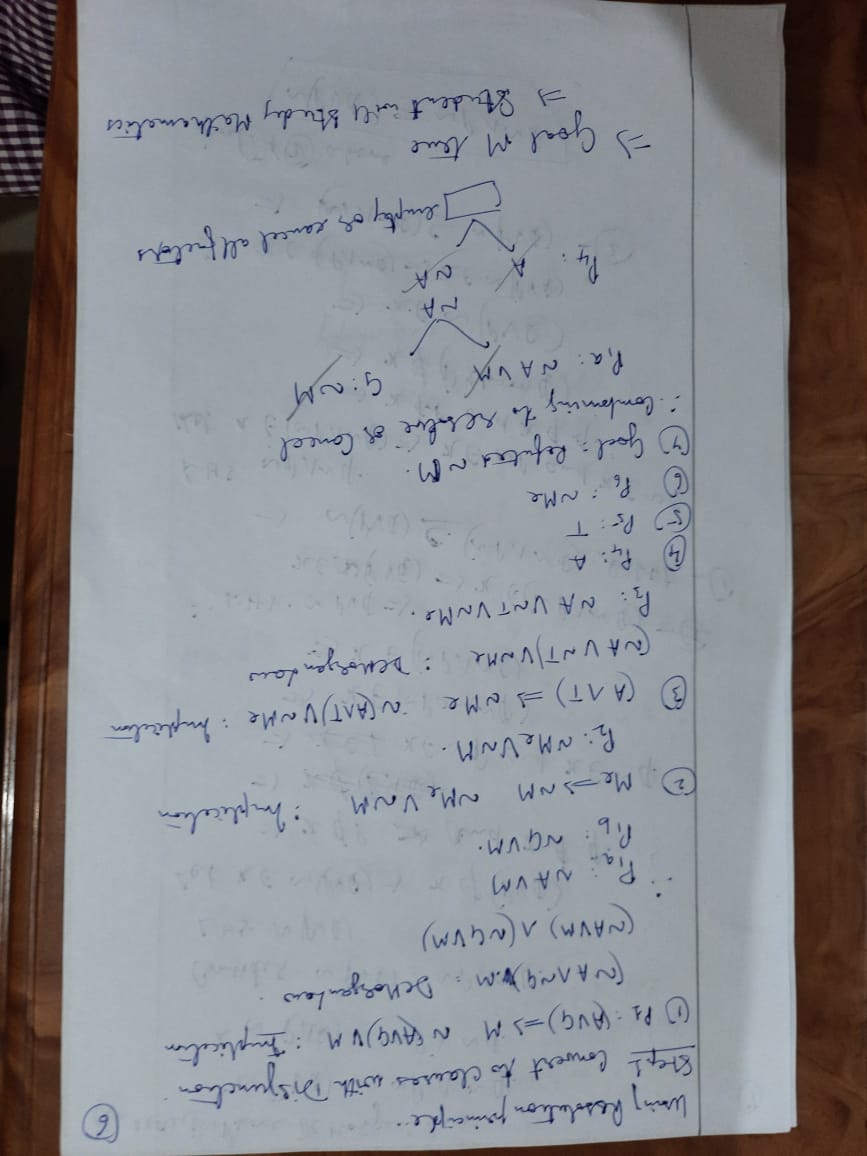 6
Using Resolution principle..
Step 1 Convert to clauses with Disjunction
① P1 : (AVG) => M ~(AVG) V M : Implication
(~A ∧ ~G) V M : DeMorgan Law .
(~AVM) ∧ (~GVM)
∴ P1a : ~AVM
P1b : ~GVM.
② Me => ~M ~Me V ~M : Implication
P2 : ~Me V ~M .
③ (A ∧ T) => ~Me ~(A∧T) V ~Me : Implication
(~A V ~T) V ~Me : DeMorgan Law
P3 : ~A V ~T V ~Me .
④ P4 : A
⑤ P5 : T
⑥ P6 : ~Me
⑦ Goal : Refuted ~M .
∴ Combining to resolve or Cancel
P1a : ~A V M G : ~M
~A
P4 : A ~A
empty or cancel all factors
=> Goal M true
=> Student will Study Mathematics